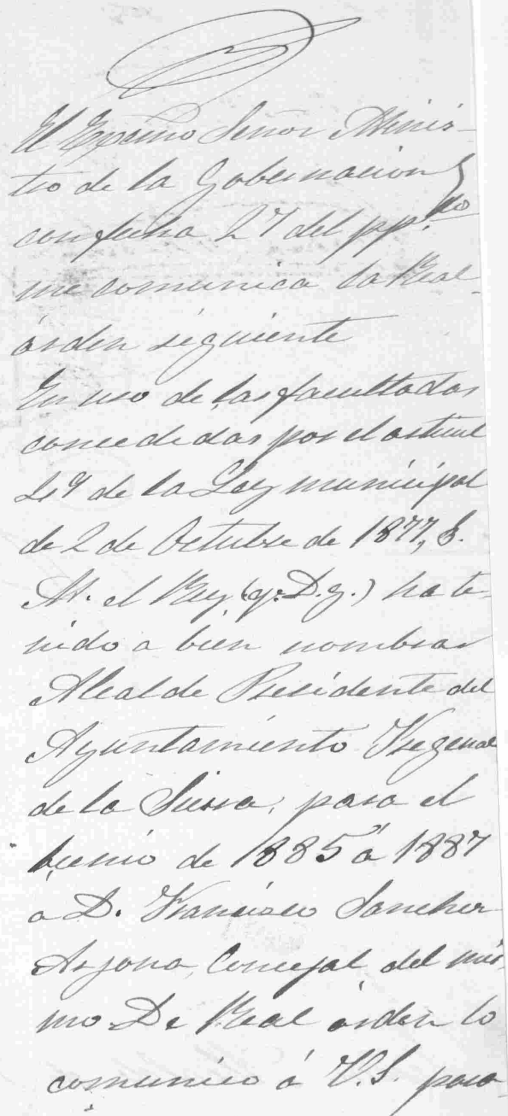 El Excmo Señor Minis-
tro de la Gobernacion
con fecha 27 del pp.do
me comunica la Real
órden siguiente
En uso de las facultades
concedidas por el articul
49 de la Ley municipal
de 2 de Octubre de 1877, S.
M. el Rey (q. D. g.) ha te-
nido a bien nombrar
Alcalde Presidente del
Ayuntamiento Fregenal
de la Sierra, para el
bienio de 1885 á 1887
a D. Francisco Sanchez
Arjona, Concejal del mis-
mo De Real órden lo
comunico á V.S. para